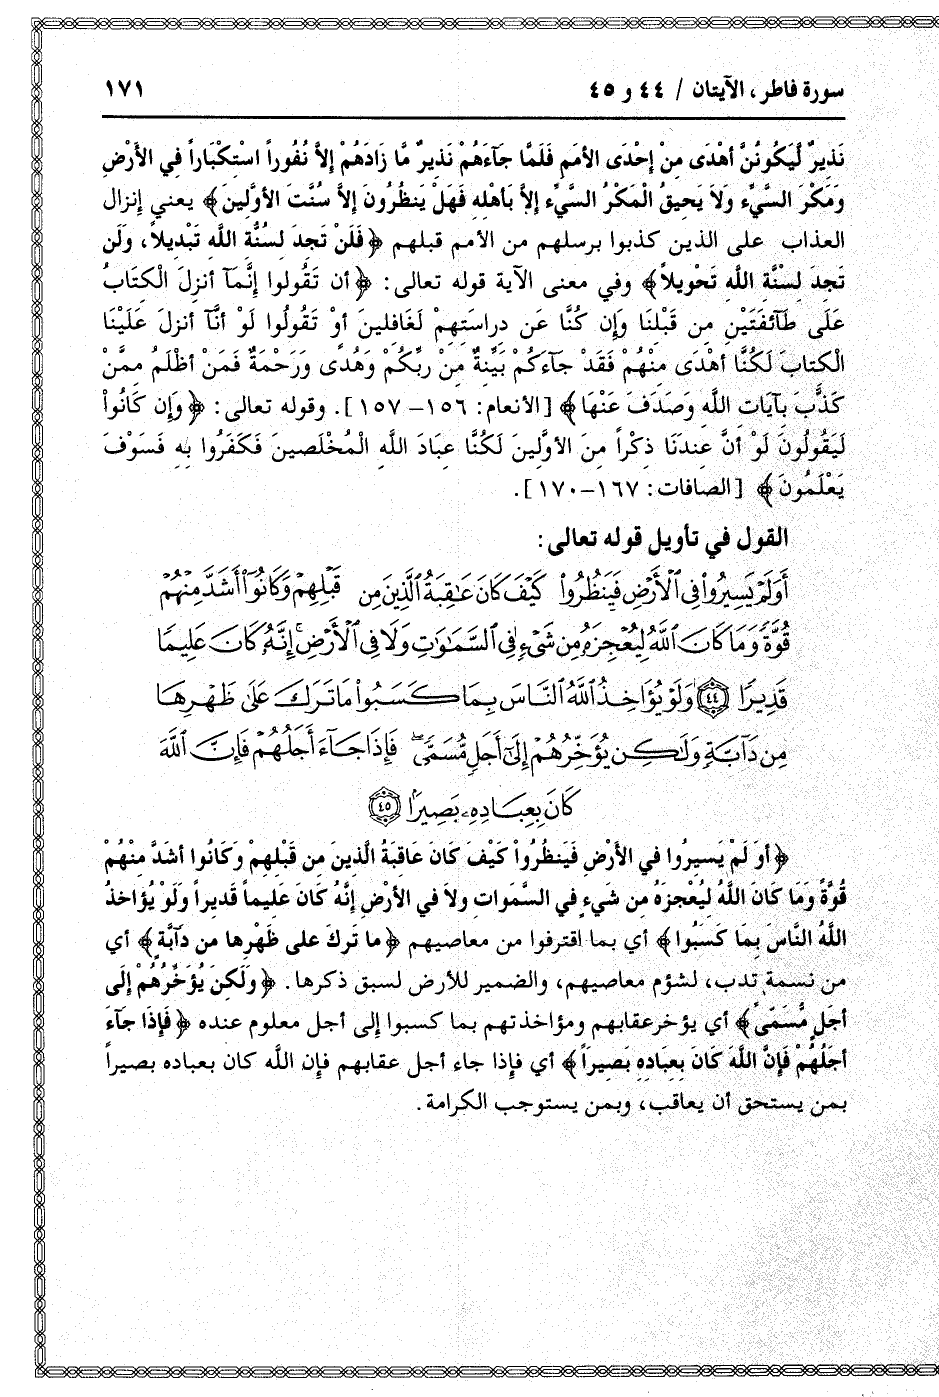 سورة فاطر، الآيتان / ٤٤ و ٤٥
١٧١
نَذِيرٌ لَيَكُونُنَّ أَهْدَى مِنْ إِحْدَى الأُمَمِ فَلَمَّا جَآءَهُمْ نَذِيرٌ مَّا زَادَهُمْ إِلاَّ نُفُوراً اسْتِكْبَاراً فِي الأَرْضِ
وَمَكْرَ السَّيِّءِ وَلاَ يَحِيقُ الْمَكْرُ السَّيِّءُ إِلاَّ بِأَهْلِهِ فَهَلْ يَنظُرُونَ إِلاَّ سُنَّتَ الأَوَّلِينَ﴾ يعني إنزال
العذاب على الذين كذبوا برسلهم من الأمم قبلهم ﴿فَلَنْ تَجِدَ لِسُنَّةِ اللَّهِ تَبْدِيلاً، وَلَن
تَجِدَ لِسُنَّةِ اللَّهِ تَحْوِيلاً﴾ وفي معنى الآية قوله تعالى: ﴿أَن تَقُولُوا إِنَّمَآ أُنزِلَ الْكِتَابُ
عَلَى طَآئِفَتَيْنِ مِن قَبْلِنَا وَإِن كُنَّا عَن دِرَاسَتِهِمْ لَغَافِلِينَ أَوْ تَقُولُوا لَوْ أَنَّآ أُنزِلَ عَلَيْنَا
الْكِتَابُ لَكُنَّا أَهْدَى مِنْهُمْ فَقَدْ جَآءَكُمْ بَيِّنَةٌ مِنْ رَبِّكُمْ وَهُدًى وَرَحْمَةٌ فَمَنْ أَظْلَمُ مِمَّنْ
كَذَّبَ بِآيَاتِ اللَّهِ وَصَدَفَ عَنْهَا﴾ [الأنعام: ١٥٦-١٥٧]. وقوله تعالى: ﴿وَإِن كَانُواْ
لَيَقُولُونَ لَوْ أَنَّ عِندَنَا ذِكْراً مِنَ الأَوَّلِينَ لَكُنَّا عِبَادَ اللَّهِ الْمُخْلَصِينَ فَكَفَرُوا بِهِ فَسَوْفَ
يَعْلَمُونَ﴾ [الصافات: ١٦٧-١٧٠].
القول في تأويل قوله تعالى:
أَوَلَمْ يَسِيرُوا۟ فِى ٱلْأَرْضِ فَيَنظُرُوا۟ كَيْفَ كَانَ عَٰقِبَةُ ٱلَّذِينَ مِن قَبْلِهِمْ وَكَانُوٓا۟ أَشَدَّ مِنْهُمْ
قُوَّةً ۚ وَمَا كَانَ ٱللَّهُ لِيُعْجِزَهُۥ مِن شَىْءٍ فِى ٱلسَّمَٰوَٰتِ وَلَا فِى ٱلْأَرْضِ ۚ إِنَّهُۥ كَانَ عَلِيمًا
قَدِيرًا ﴿٤٤﴾ وَلَوْ يُؤَاخِذُ ٱللَّهُ ٱلنَّاسَ بِمَا كَسَبُوا۟ مَا تَرَكَ عَلَىٰ ظَهْرِهَا
مِن دَآبَّةٍ وَلَٰكِن يُؤَخِّرُهُمْ إِلَىٰٓ أَجَلٍ مُّسَمًّى ۖ فَإِذَا جَآءَ أَجَلُهُمْ فَإِنَّ ٱللَّهَ
كَانَ بِعِبَادِهِۦ بَصِيرًۢا ﴿٤٥﴾
﴿أَوَ لَمْ يَسِيرُوا فِي الأَرْضِ فَيَنظُرُواْ كَيْفَ كَانَ عَاقِبَةُ الَّذِينَ مِن قَبْلِهِمْ وَكَانُوا أَشَدَّ مِنْهُمْ
قُوَّةً وَمَا كَانَ اللَّهُ لِيُعْجِزَهُ مِن شَيْءٍ فِي السَّمَوات وَلاَ فِي الأَرْضِ إِنَّهُ كَانَ عَلِيماً قَدِيراً وَلَوْ يُؤَاخِذُ
اللَّهُ النَّاسَ بِمَا كَسَبُوا﴾ أي بما اقترفوا من معاصيهم ﴿مَا تَرَكَ عَلَى ظَهْرِهَا مِن دَآبَّةٍ﴾ أي
من نسمة تدب، لشؤم معاصيهم، والضمير للأرض لسبق ذكرها. ﴿وَلَكِن يُؤَخِّرُهُمْ إِلَى
أَجَلٍ مُّسَمًّى﴾ أي يؤخر عقابهم ومؤاخذتهم بما كسبوا إلى أجل معلوم عنده ﴿فَإِذَا جَآءَ
أَجَلُهُمْ فَإِنَّ اللَّهَ كَانَ بِعِبَادِهِ بَصِيراً﴾ أي فإذا جاء أجل عقابهم فإن الله كان بعباده بصيراً
بمن يستحق أن يعاقب، وبمن يستوجب الكرامة.